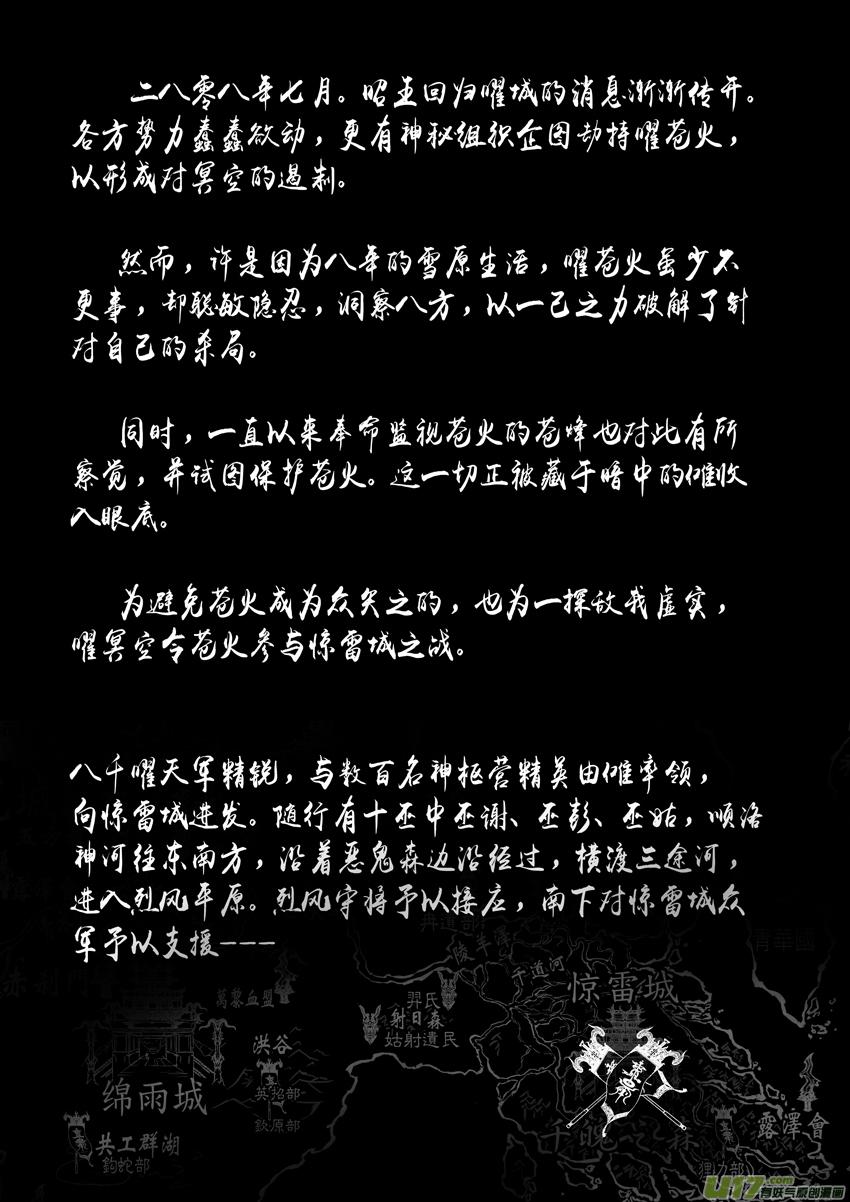 二八零八年七月。昭王回归曜城的消息渐渐传开。
各方势力蠢蠢欲动，更有神秘组织企图劫持曜苍火，
以形成对冥空的遏制。
然而，许是因为八年的雪原生活，曜苍火虽少不
更事，却聪敏隐忍，洞察八方，以一己之力破解了针
对自己的杀局。
同时，一直以来奉命监视苍火的苍峰也对此有所
察觉，并试图保护苍火。这一切正被藏于暗中的傩收
入眼底。
为避免苍火成为众矢之的，也为一探敌我虚实，
曜冥空令苍火参与惊雷城之战。
八千曜天军精锐，与数百名神枢营精英由傩率领，
向惊雷城进发。随行有十巫中巫谢、巫彭、巫姑，顺洛
神河往东南方，沿着恶鬼森边沿经过，横渡三途河，
进入烈风平原。烈风守将予以接应，南下对惊雷城众
军予以支援---
青華國
千道河
赤利門
萬黎血盟
羿氏
射日森
姑射遺民
惊雷城
洪谷
英招部
欽原部
绵雨城
共工群湖
鉤蛇部
露澤會
狸力部
U17.COM
有妖气原创漫画